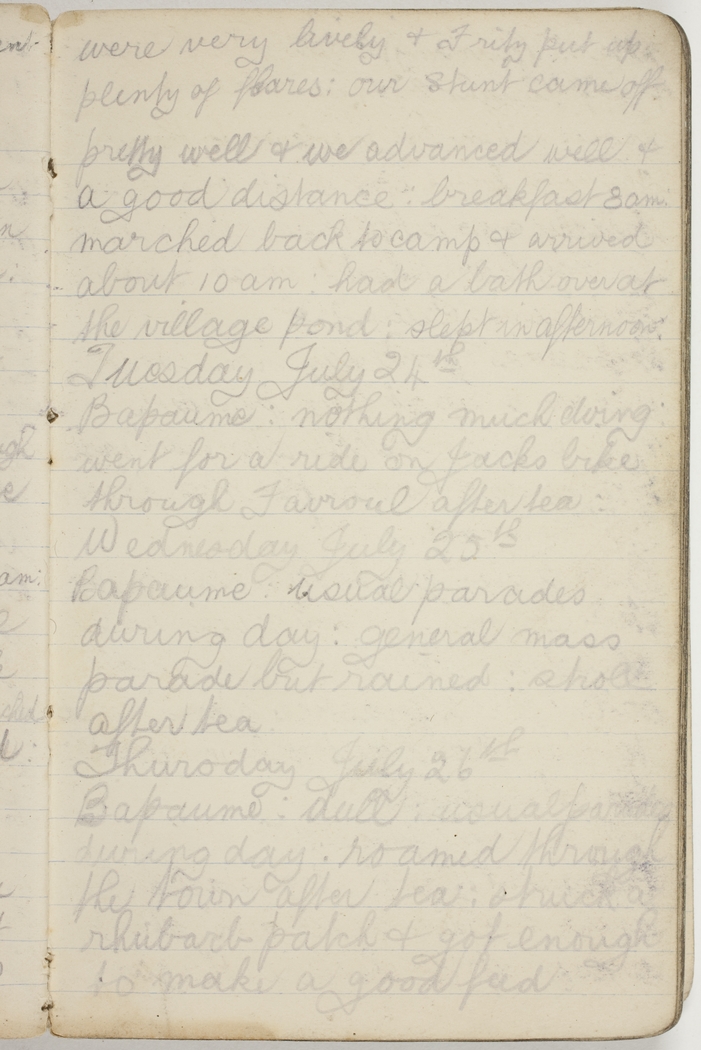 were very lively & Fritz put up
plenty of flares: our stunt came off
pretty well & we advanced well &
a good distance: breakfast 8am.
marched back to camp & arrived
about 10 am: had a bath over at
the village pond: slept in afternoon:
Tuesday July 24th
Bapaume: nothing much doing
went for a ride on Jacks bike
through Favroul after tea:
Wednesday July 25th
Bapaume: usual parades
during day: general mass
parade but rained: stroll
after tea
Thursday July 26th
Bapaume: dull: usual parades
during day. roamed through
the town after tea: struck a
rhubarb patch & got enough
to make a good feed